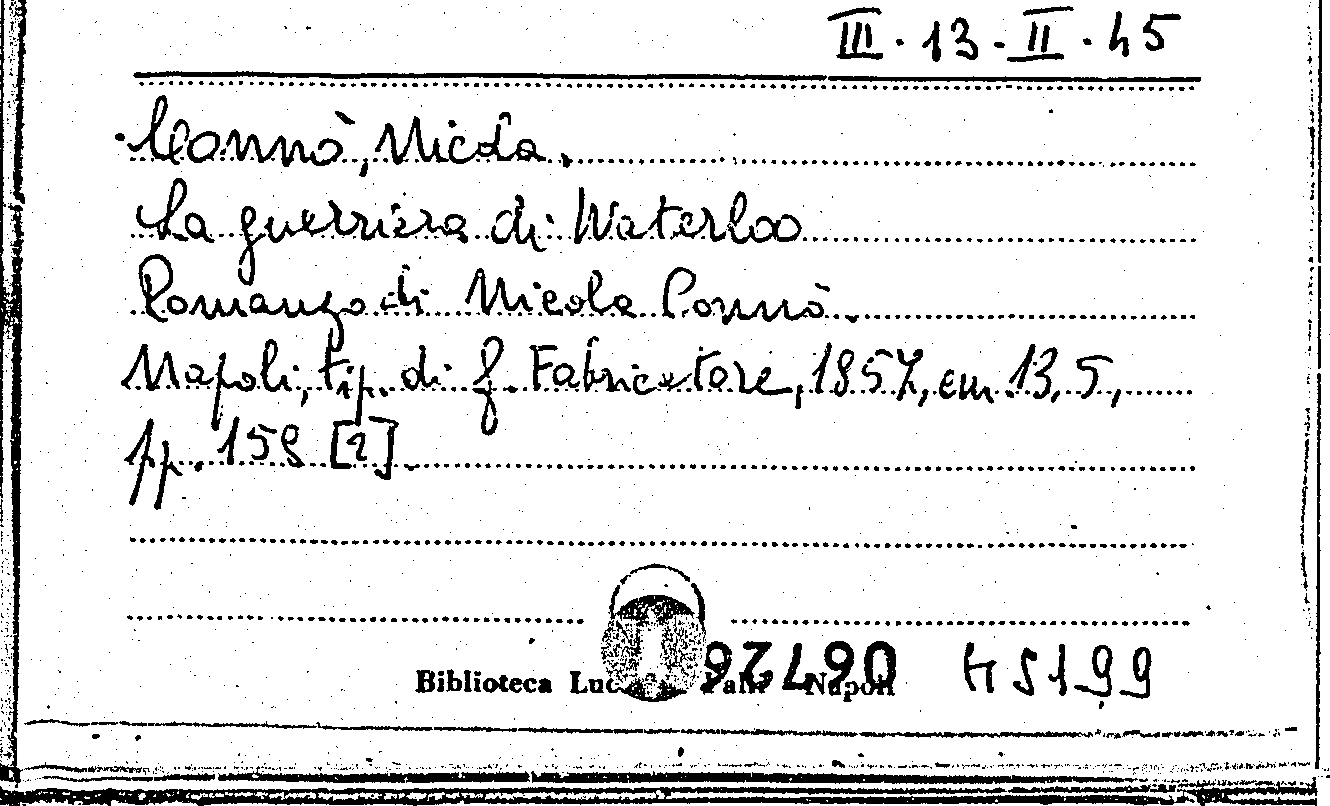 III. 13 - II. 45
Connò, Nicola.
La guerriera di Waterloo
Romanzo di Nicola Connò.
Napoli, tip. di f. Fabricatore, 1857, cm. 13,5,
pp. 158 [2]
Biblioteca Napoli